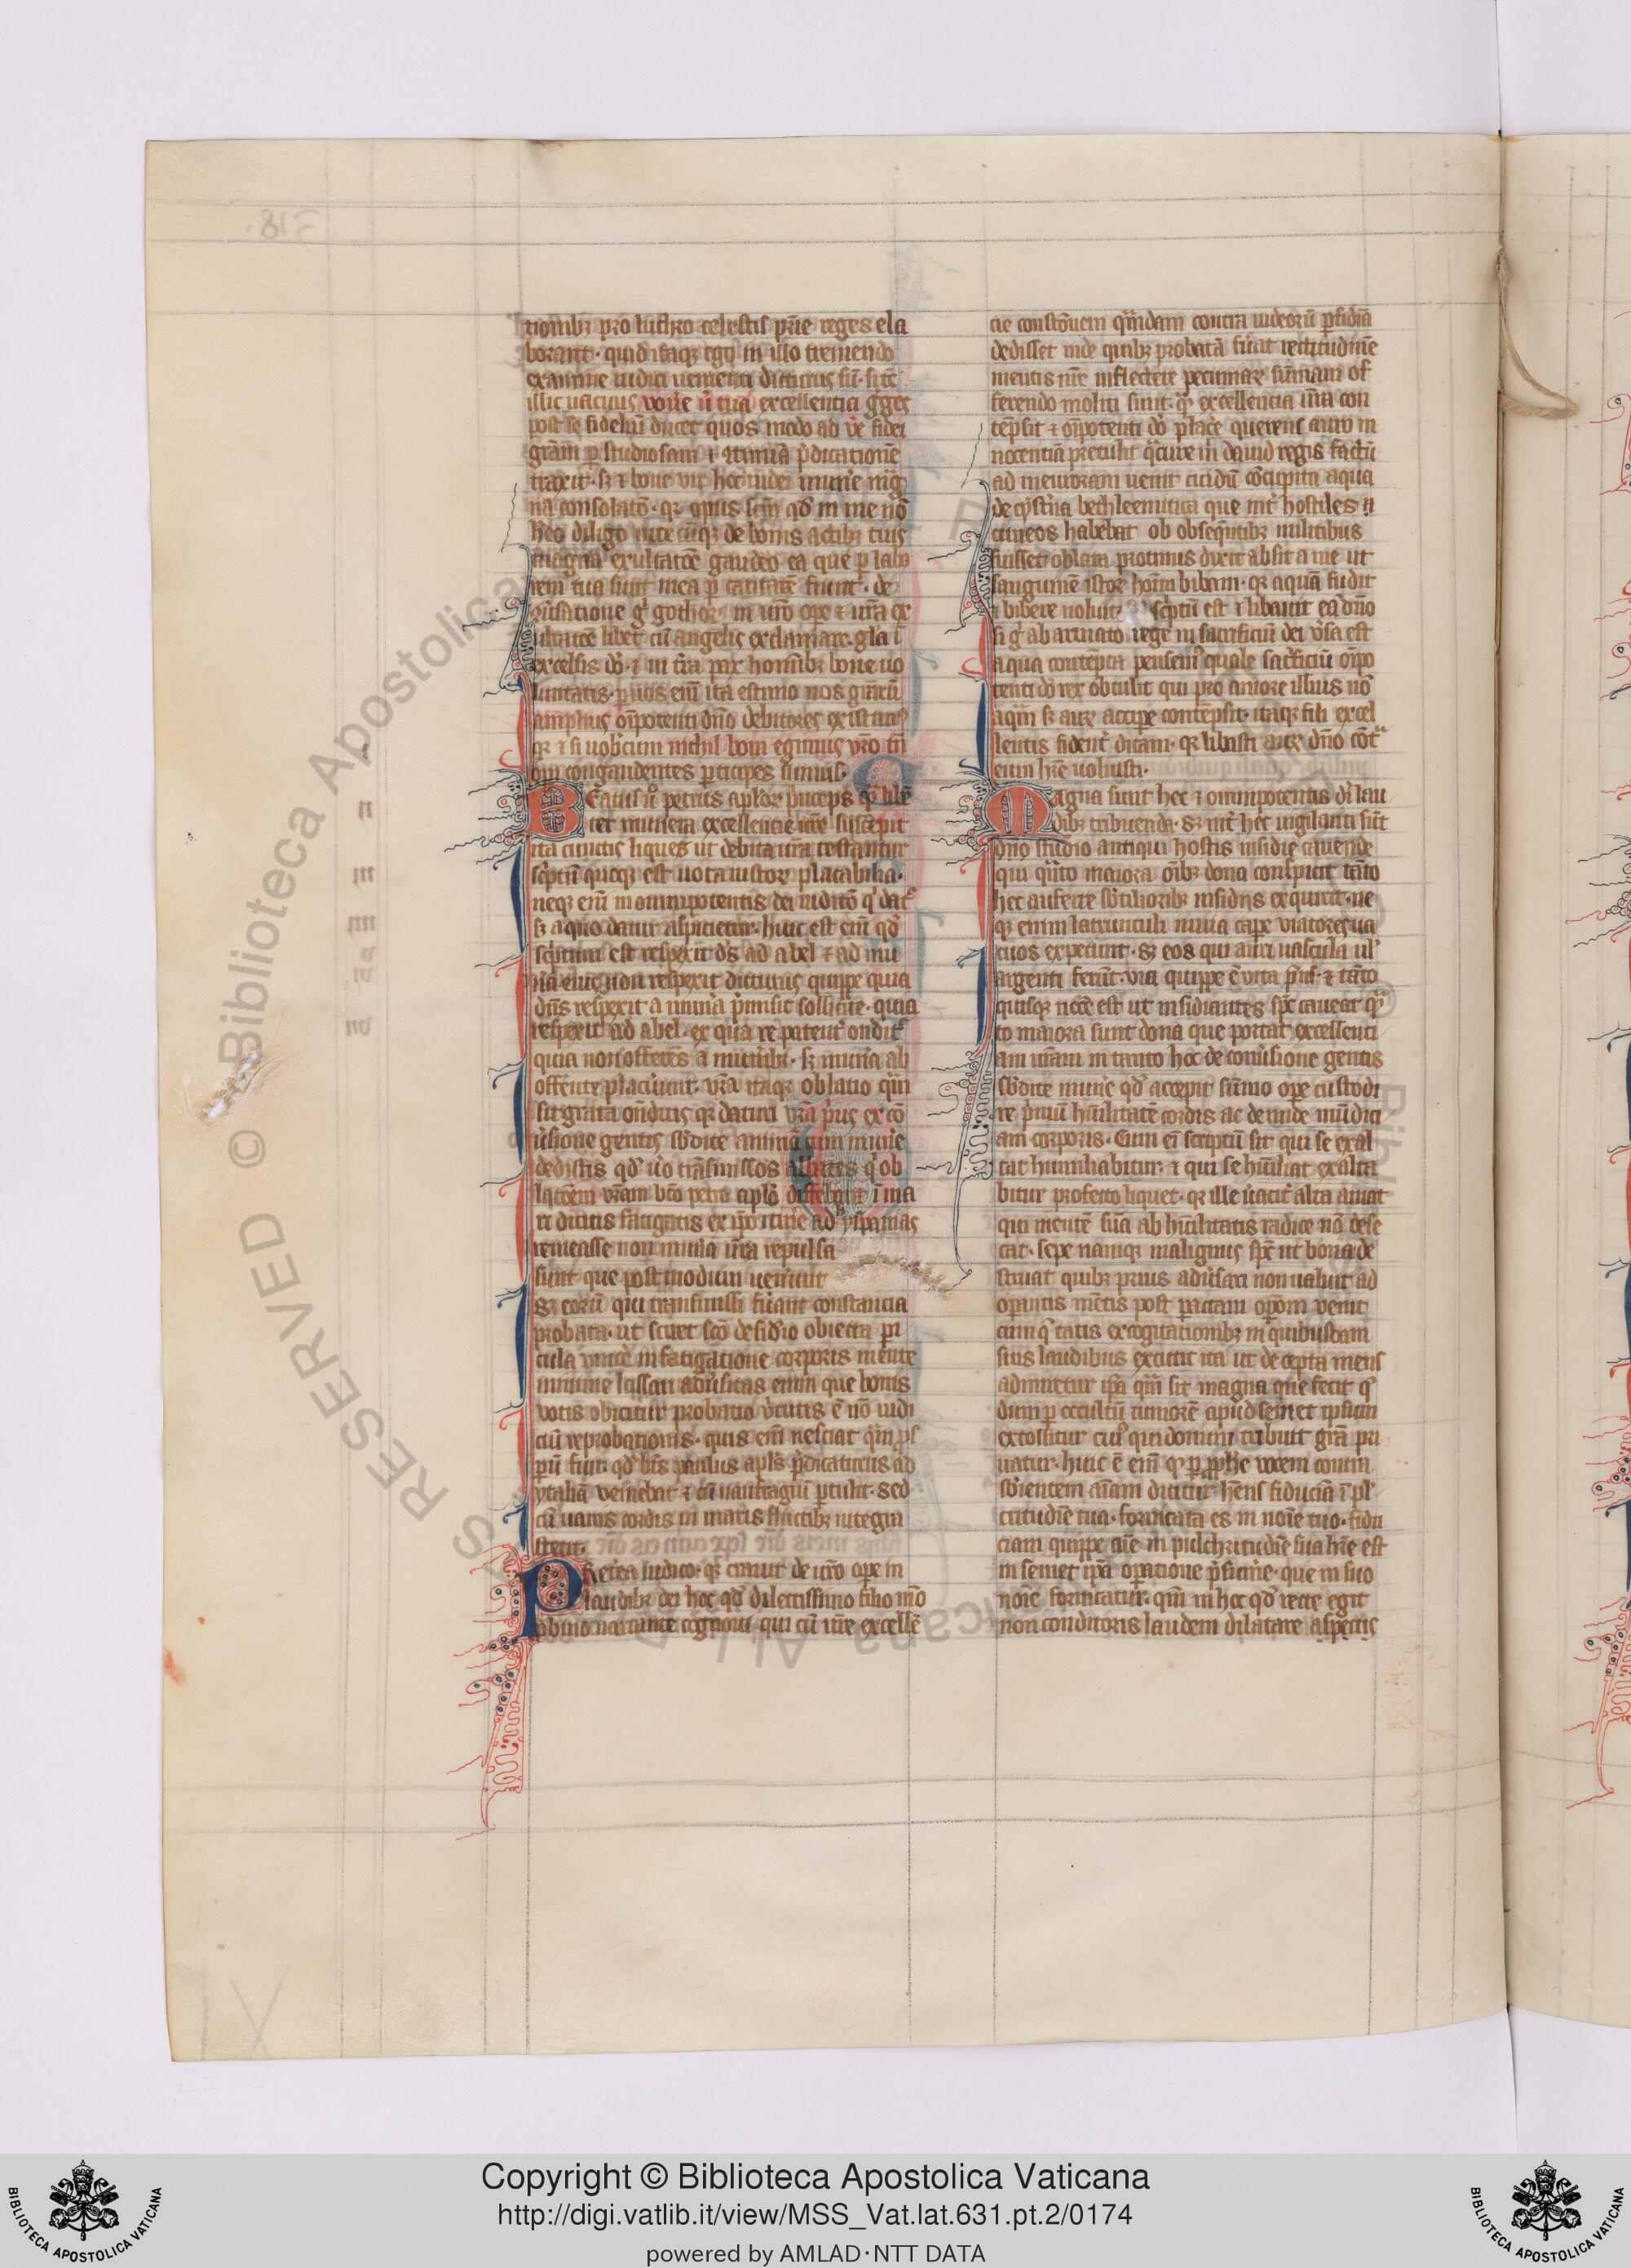 tionibꝫ pro lucro celestis pr̄ie reges ela
borant. quid itaqꝫ ego in illo tremendo
examine iudici uenienti dicturus sū. si tc̄
illic uacuus
post se fideliū ducet quos modo ad ūe fidei
gr̄am p studiosam ⁊ p̄dicationē
traxit. sꝫ ⁊ bone uir hec
na consolatō. qꝛ opus sc̄m qd̓ in me nō
heo diligo in te cūqꝫ de bonis actibꝫ tuis
magna exultatōe gaudeo ea que p labo
rem tua sunt mea p caritatē fiunt. de
gothoꝝ in uro ope ⁊ ur̄a ex
ultatōe libet cū angelis exclamare. gl̄a ī
excelsis dō. ⁊ in t̄ra pax homībꝫ bone uo
luntatis.
amplius om̄ipotenti dn̄o debitores
qꝛ ⁊ si uobcum nichil boni egimus uro tn̄
opi congaudentes pticipes sumus.
Beatus ū petrus aplōꝝ p̄nceps q̄m libē
ter munera excellencie ur̄e suscepit
ita cunctis liqueꝫ ut debita ur̄a testantur
sc̄ptū quoqꝫ est uota iustoꝝ placabilia.
neqꝫ enī in omnipotentis dei
sꝫ a quo datur aspicietur. hinc est enī qd̓
sc̄ptum est respexit dꝰs ad abel ⁊ ad mu
na eius non respexit dicturus quippe quia
dn̄s respexit a muna p̄misit sollicite. quia
respexit ad abel. ex qua re patent̓
quia non offerēs a munibꝫ. sꝫ muna ab
offerente placuerunt. ur̄a itaqꝫ oblatio q̄m
sit grata on̄ditis qꝛ daturi
uersione gentis sb̓dite animā cum mune
dedistis qd̓ u̓o trāsmissos abbates q̓ ob
latōem ur̄am btō petro aplo deferebāt ī ma
re dicitis fatigatis ex ipo itine ad yspanias
remeasse non muna ur̄a repulsa
sunt que post modum uenerunt
sꝫ eorū qui transmissi fuant constancia
probata. ut sciret scō desid̓io obiecta pi
cula uince in fatigatione corporis mente
minime lassari aduersitas enim que bonis
uotis obicitur probatio u̓tutis ē nō iudi
ciū reprobationis. quis enī nesciat
pū fuit qd̓ bt̄s paulus apl̄s p̄dicaturus ad
ytaliā veniebat ⁊ cū naufragiū ptulit. sed
cū nauis cordis in maris fluctibꝫ integra
stetit.
Preterea indico. qꝛ creuit de uro ope in
laudibꝫ dei hoc qd̓ dilectissimo filio mō
pbino narrante cognoui qui cū ur̄e excellē
cie constōuem q̄mdam contra iudeorū pfidiā
dedisset inde quibꝫ probata fuat rectitudinē
mentis ur̄e inflectere pecuniaꝝ sūmam of
ferendo moliti sunt. qꝫ excellencia ur̄a con
tēpsit ⁊ om̄ipotenti dō placē querens auro in
nocentiā pretulit qua in re in dauid regis factū
ad memoriam uenit cui dū cōcupita aqua
de cyst̓na bethleemitica que int̓ hostiles
cuneos habebat ob obsequētibꝫ militibus
fuisset oblata protinus dixit absit a me ut
sanguinē istoꝝ hoīm bibam. qꝛ aquā fudit
⁊ bibere noluit sc̄ptū est ⁊ libauit eā dn̄o
si gͦ ab armato rege in sacrificiū dei u̓sa est
aqua contēpta pensemꝰ quale sac̓ficiū om̄ipo
tenti dō rex obtulit qui pro amore illius nō
aquam sꝫ aurꝝ accipe contēpsit. itaqꝫ fili excel
lentis fident̓ dicam. qꝛ libasti aurꝝ dn̄o cōtͣ
eum hr̄e noluisti.
Magna sunt hec ⁊ omnipotentis dī lau
dibꝫ tribuenda. sꝫ int̓ hec uigilanti sūt
dno studio antiqui hostis insidie cauende
qui quāto maiora oībꝫ dona conspicit tāto
hec auferre sb̓tilioribꝫ insidiis exquirit. ne
qꝫ enim latrunculi in uia cape uiatores ua
cuos expetunt. sꝫ eos qui auri uascula ul̓
argenti ferūt. via quippe ē vita p̄ns. ⁊ tāto
quisqꝫ necē est ut insidiantes sp̄c caueat qn̄
to maiora sunt dona que portat excellenti
am ur̄am in tanto hoc de conu̓sione gentis
sb̓dite mune qd̓ accepit sūmo ope custodi
re p̓mū hūilitatē cordis ac deinde mūdici
am corporis. Cum ei scriptū sit qui se exal
tat humiliabitur. ⁊ qui se hūiliat exalta
bitur profecto liquet. qꝛ ille u̓acit̓ alta amat
qui mentē suā ab hūilitatis radice nō dese
cat. sepe namqꝫ malignus sp̄c ut bona de
struat quibꝫ prius adu̓sari non ualuit ad
opantis mētis post pactam opōm venit
eamqꝫ tacitis excogitationibꝫ in quibusdam
suis laudibus excutit ita ut decepta mens
admiretur ipa q̄m sit magna que fecit q̄
dum p occultū tumorē apud semet ipsam
extollitur eiꝰ qui donum tribuit grā pri
uatur. hinc ē enī qd̓ p pphe vocem contra
sb̓ientem aīam dicitur hēns fiduciā ī pl̓
critudīe tua. fornicata es in noīe tuo. fidu
ciam quippe aīe in pulchritudīe sua hr̄e est
in semet ipa opatione p̄sumere. que in suo
noīe fornicatur. qm̄ in hoc qd̓ recte egit
non conditoris laudem dilatare aspectis
Copyright © Biblioteca Apostolica Vaticana
http://digi.vatlib.it/view/MSS_Vat.lat.631.pt.2/0174
powered by AMLAD·NTT DATA
BIBLIOTECA APOSTOLICA VATICANA
BIBLIOTECA APOSTOLICA VATICANA